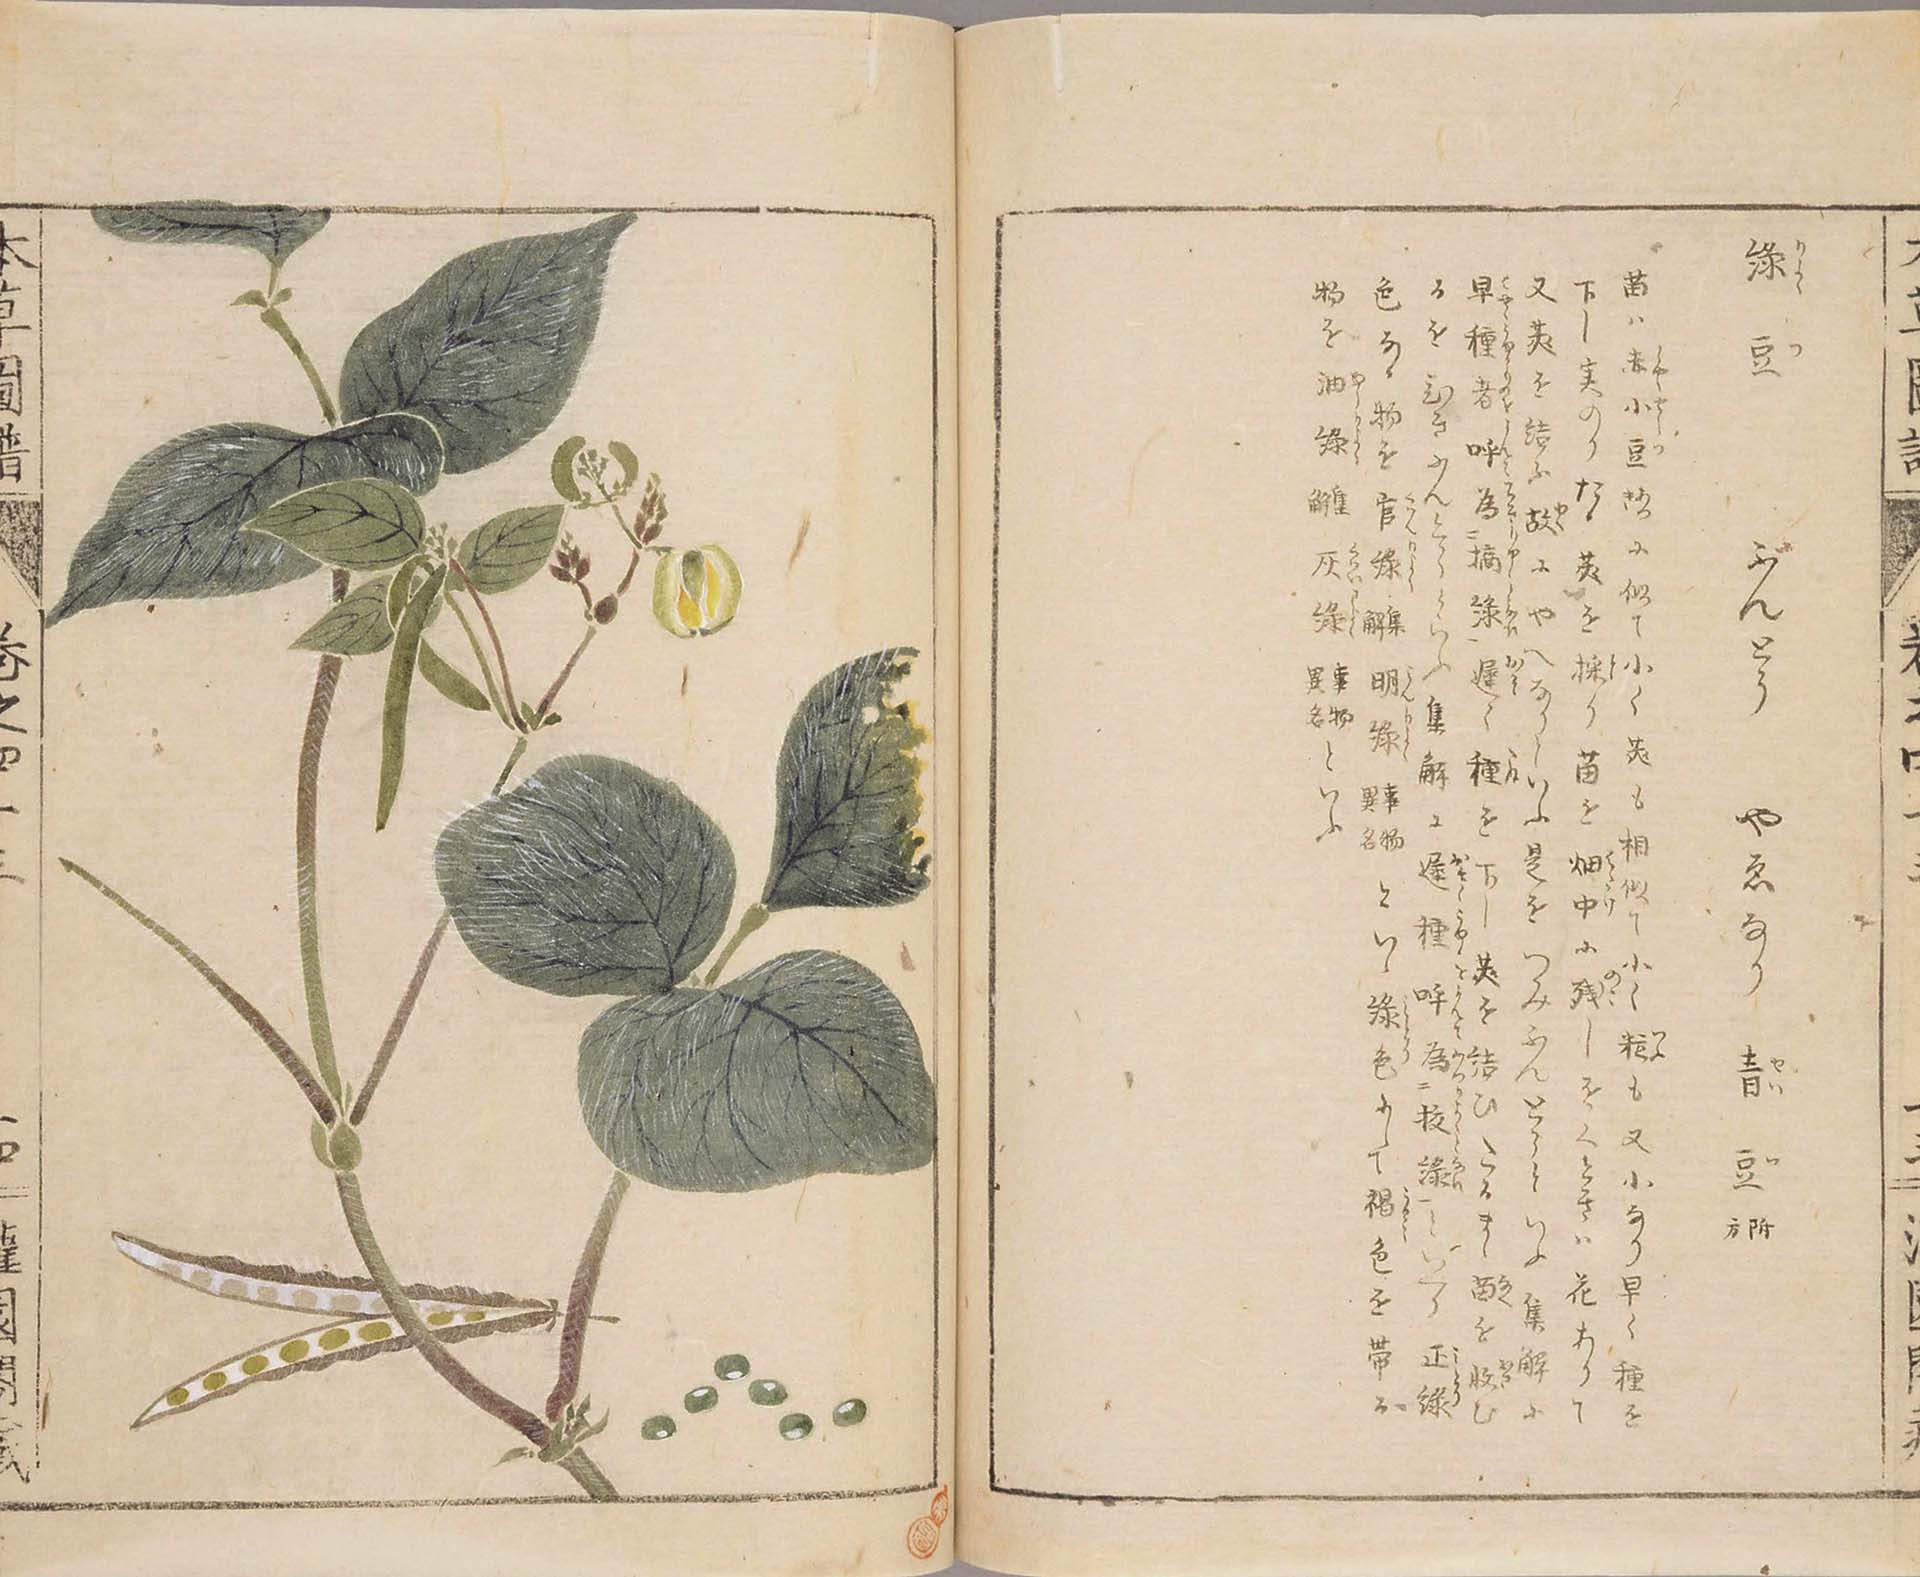 綠豆 ぶんとう やゑなり 青豆 附方
苗ハ赤小豆苗に似て小く莢も相似て小く粒も又小なり早く種を
下し実のりたる莢を採り苗を畑中に残しをくときハ花ありて
又莢を結ふ故にやへなりといふ是をつみぶんとうといふ集解に
早種者呼為摘綠遲く種を下し莢を結ひたるまゝ苗を収む
るを ぶんとうといふ集解に遲種呼為拔綠といへり正綠
色なる物を官綠集解明綠事物異名といゝ綠色にして褐色を帯る
物を油綠集解灰綠事物異名といふ
本草圖譜 卷之四十三 灌園閣藏